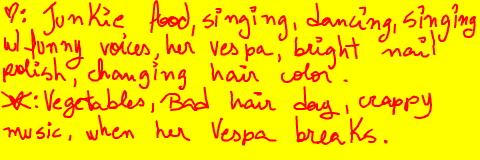 ♡: Junkie food, singing, dancing, singing
w/ funny voices, her vespa, bright nail
polish, changing hair color.
: Vegetables, Bad hair day, crappy
music, when her Vespa breaks.